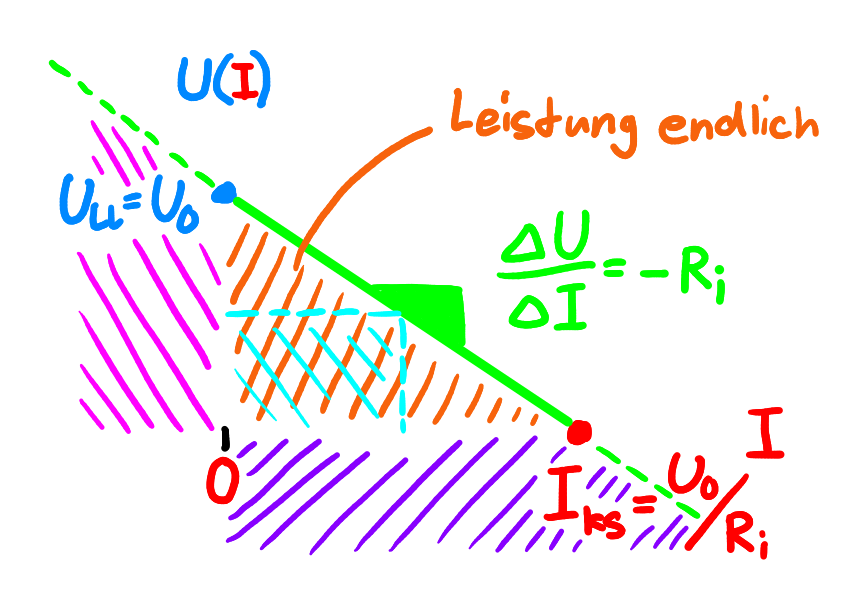 U(I)
Leistung endlich
U_LL = U_0
ΔU/ΔI = -R_i
I
0
I_KS = U_0/R_i